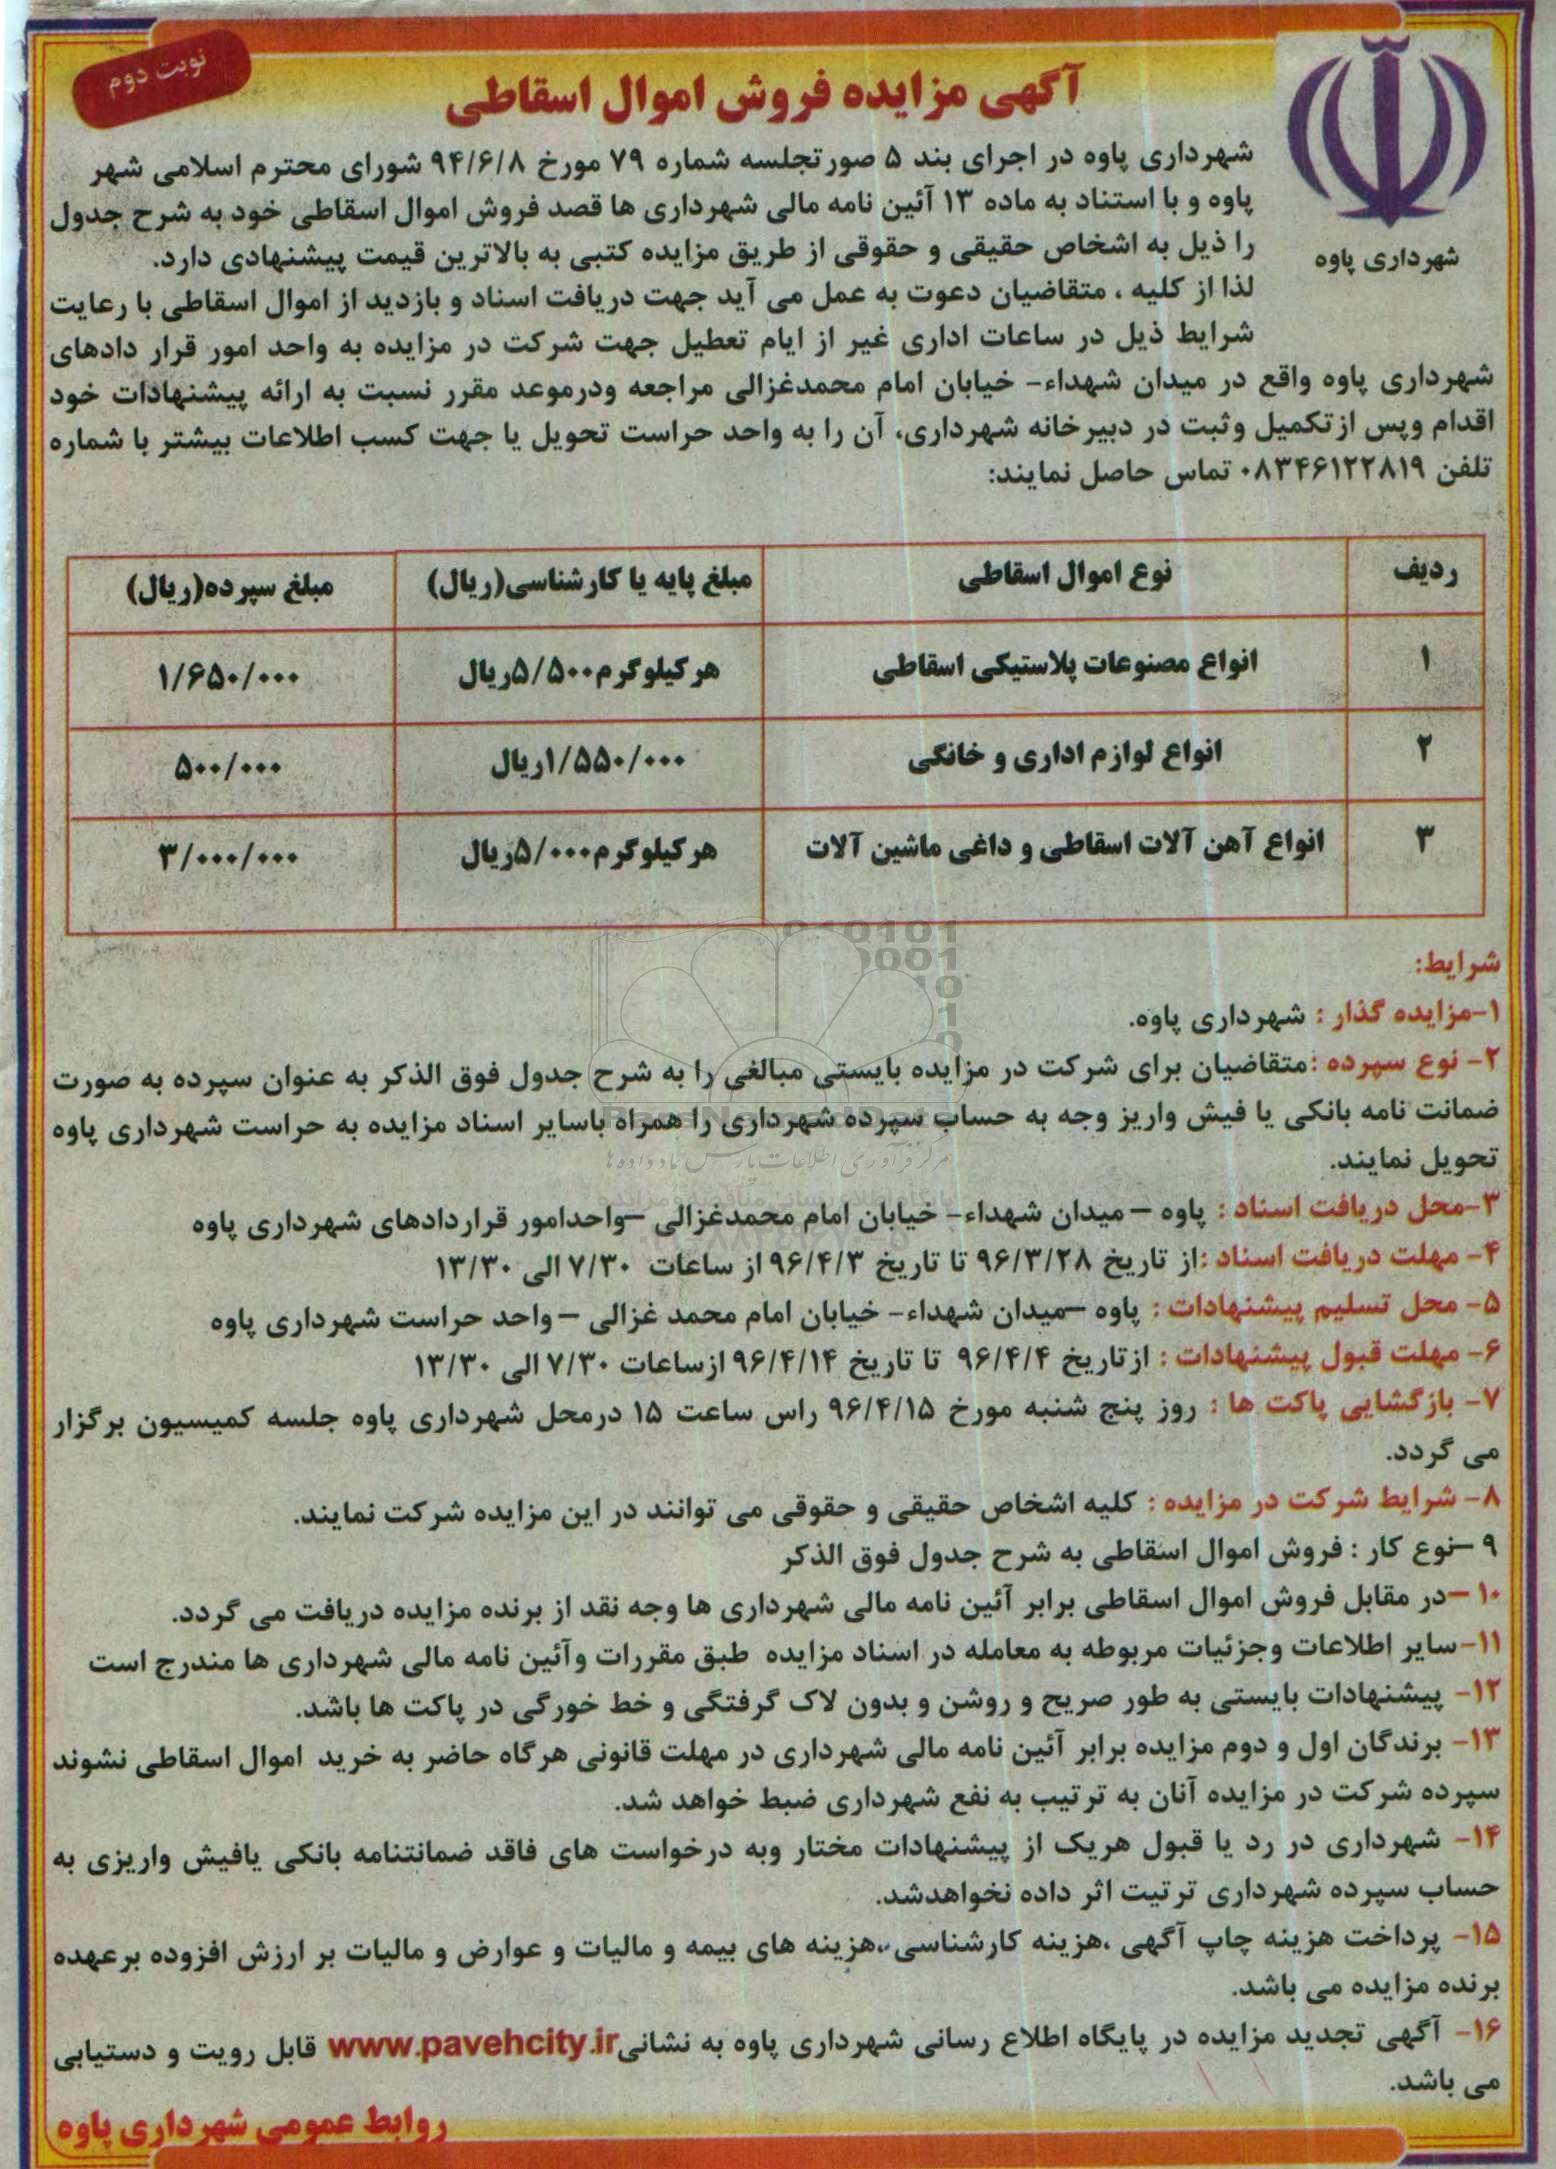 نوبت دوم
آگهی مزایده فروش اموال اسقاطی
شهرداری پاوه
شهرداری پاوه در اجرای بند ۵ صورتجلسه شماره ۷۹ مورخ ۹۴/۶/۸ شورای محترم اسلامی شهر
پاوه و با استناد به ماده ۱۳ آئین نامه مالی شهرداری ها قصد فروش اموال اسقاطی خود به شرح جدول
را ذیل به اشخاص حقیقی و حقوقی از طریق مزایده کتبی به بالاترین قیمت پیشنهادی دارد.
لذا از کلیه ، متقاضیان دعوت به عمل می آید جهت دریافت اسناد و بازدید از اموال اسقاطی با رعایت
شرایط ذیل در ساعات اداری غیر از ایام تعطیل جهت شرکت در مزایده به واحد امور قرار دادهای
شهرداری پاوه واقع در میدان شهداء- خیابان امام محمدغزالی مراجعه ودرموعد مقرر نسبت به ارائه پیشنهادات خود
اقدام وپس ازتکمیل وثبت در دبیرخانه شهرداری، آن را به واحد حراست تحویل یا جهت کسب اطلاعات بیشتر با شماره
تلفن ۰۸۳۴۶۱۲۲۸۱۹ تماس حاصل نمایند:
ردیف نوع اموال اسقاطی مبلغ پایه یا کارشناسی(ریال) مبلغ سپرده(ریال)
۱ انواع مصنوعات پلاستیکی اسقاطی هرکیلوگرم۵/۵۰۰ریال ۱/۶۵۰/۰۰۰
۲ انواع لوازم اداری و خانگی ۱/۵۵۰/۰۰۰ریال ۵۰۰/۰۰۰
۳ انواع آهن آلات اسقاطی و داغی ماشین آلات هرکیلوگرم۵/۰۰۰ریال ۳/۰۰۰/۰۰۰
شرایط:
۱-مزایده گذار : شهرداری پاوه.
۲- نوع سپرده :متقاضیان برای شرکت در مزایده بایستی مبالغی را به شرح جدول فوق الذکر به عنوان سپرده به صورت
ضمانت نامه بانکی یا فیش واریز وجه به حساب سپرده شهرداری را همراه باسایر اسناد مزایده به حراست شهرداری پاوه
تحویل نمایند.
۳-محل دریافت اسناد : پاوه – میدان شهداء- خیابان امام محمدغزالی –واحدامور قراردادهای شهرداری پاوه
۴- مهلت دریافت اسناد :از تاریخ ۹۶/۳/۲۸ تا تاریخ ۹۶/۴/۳ از ساعات ۷/۳۰ الی ۱۳/۳۰
۵- محل تسلیم پیشنهادات : پاوه –میدان شهداء- خیابان امام محمد غزالی – واحد حراست شهرداری پاوه
۶- مهلت قبول پیشنهادات : ازتاریخ ۹۶/۴/۴ تا تاریخ ۹۶/۴/۱۴ ازساعات ۷/۳۰ الی ۱۳/۳۰
۷- بازگشایی پاکت ها : روز پنج شنبه مورخ ۹۶/۴/۱۵ راس ساعت ۱۵ درمحل شهرداری پاوه جلسه کمیسیون برگزار
می گردد.
۸- شرایط شرکت در مزایده : کلیه اشخاص حقیقی و حقوقی می توانند در این مزایده شرکت نمایند.
۹ –نوع کار : فروش اموال اسقاطی به شرح جدول فوق الذکر
۱۰ –در مقابل فروش اموال اسقاطی برابر آئین نامه مالی شهرداری ها وجه نقد از برنده مزایده دریافت می گردد.
۱۱-سایر اطلاعات وجزئیات مربوطه به معامله در اسناد مزایده طبق مقررات وآئین نامه مالی شهرداری ها مندرج است
۱۲- پیشنهادات بایستی به طور صریح و روشن و بدون لاک گرفتگی و خط خورگی در پاکت ها باشد.
۱۳- برندگان اول و دوم مزایده برابر آئین نامه مالی شهرداری در مهلت قانونی هرگاه حاضر به خرید اموال اسقاطی نشوند
سپرده شرکت در مزایده آنان به ترتیب به نفع شهرداری ضبط خواهد شد.
۱۴- شهرداری در رد یا قبول هریک از پیشنهادات مختار وبه درخواست های فاقد ضمانتنامه بانکی یافیش واریزی به
حساب سپرده شهرداری ترتیت اثر داده نخواهدشد.
۱۵- پرداخت هزینه چاپ آگهی ،هزینه کارشناسی،هزینه های بیمه و مالیات و عوارض و مالیات بر ارزش افزوده برعهده
برنده مزایده می باشد.
۱۶- آگهی تجدید مزایده در پایگاه اطلاع رسانی شهرداری پاوه به نشانیwww.pavehcity.ir قابل رویت و دستیابی
می باشد.
روابط عمومی شهرداری پاوه